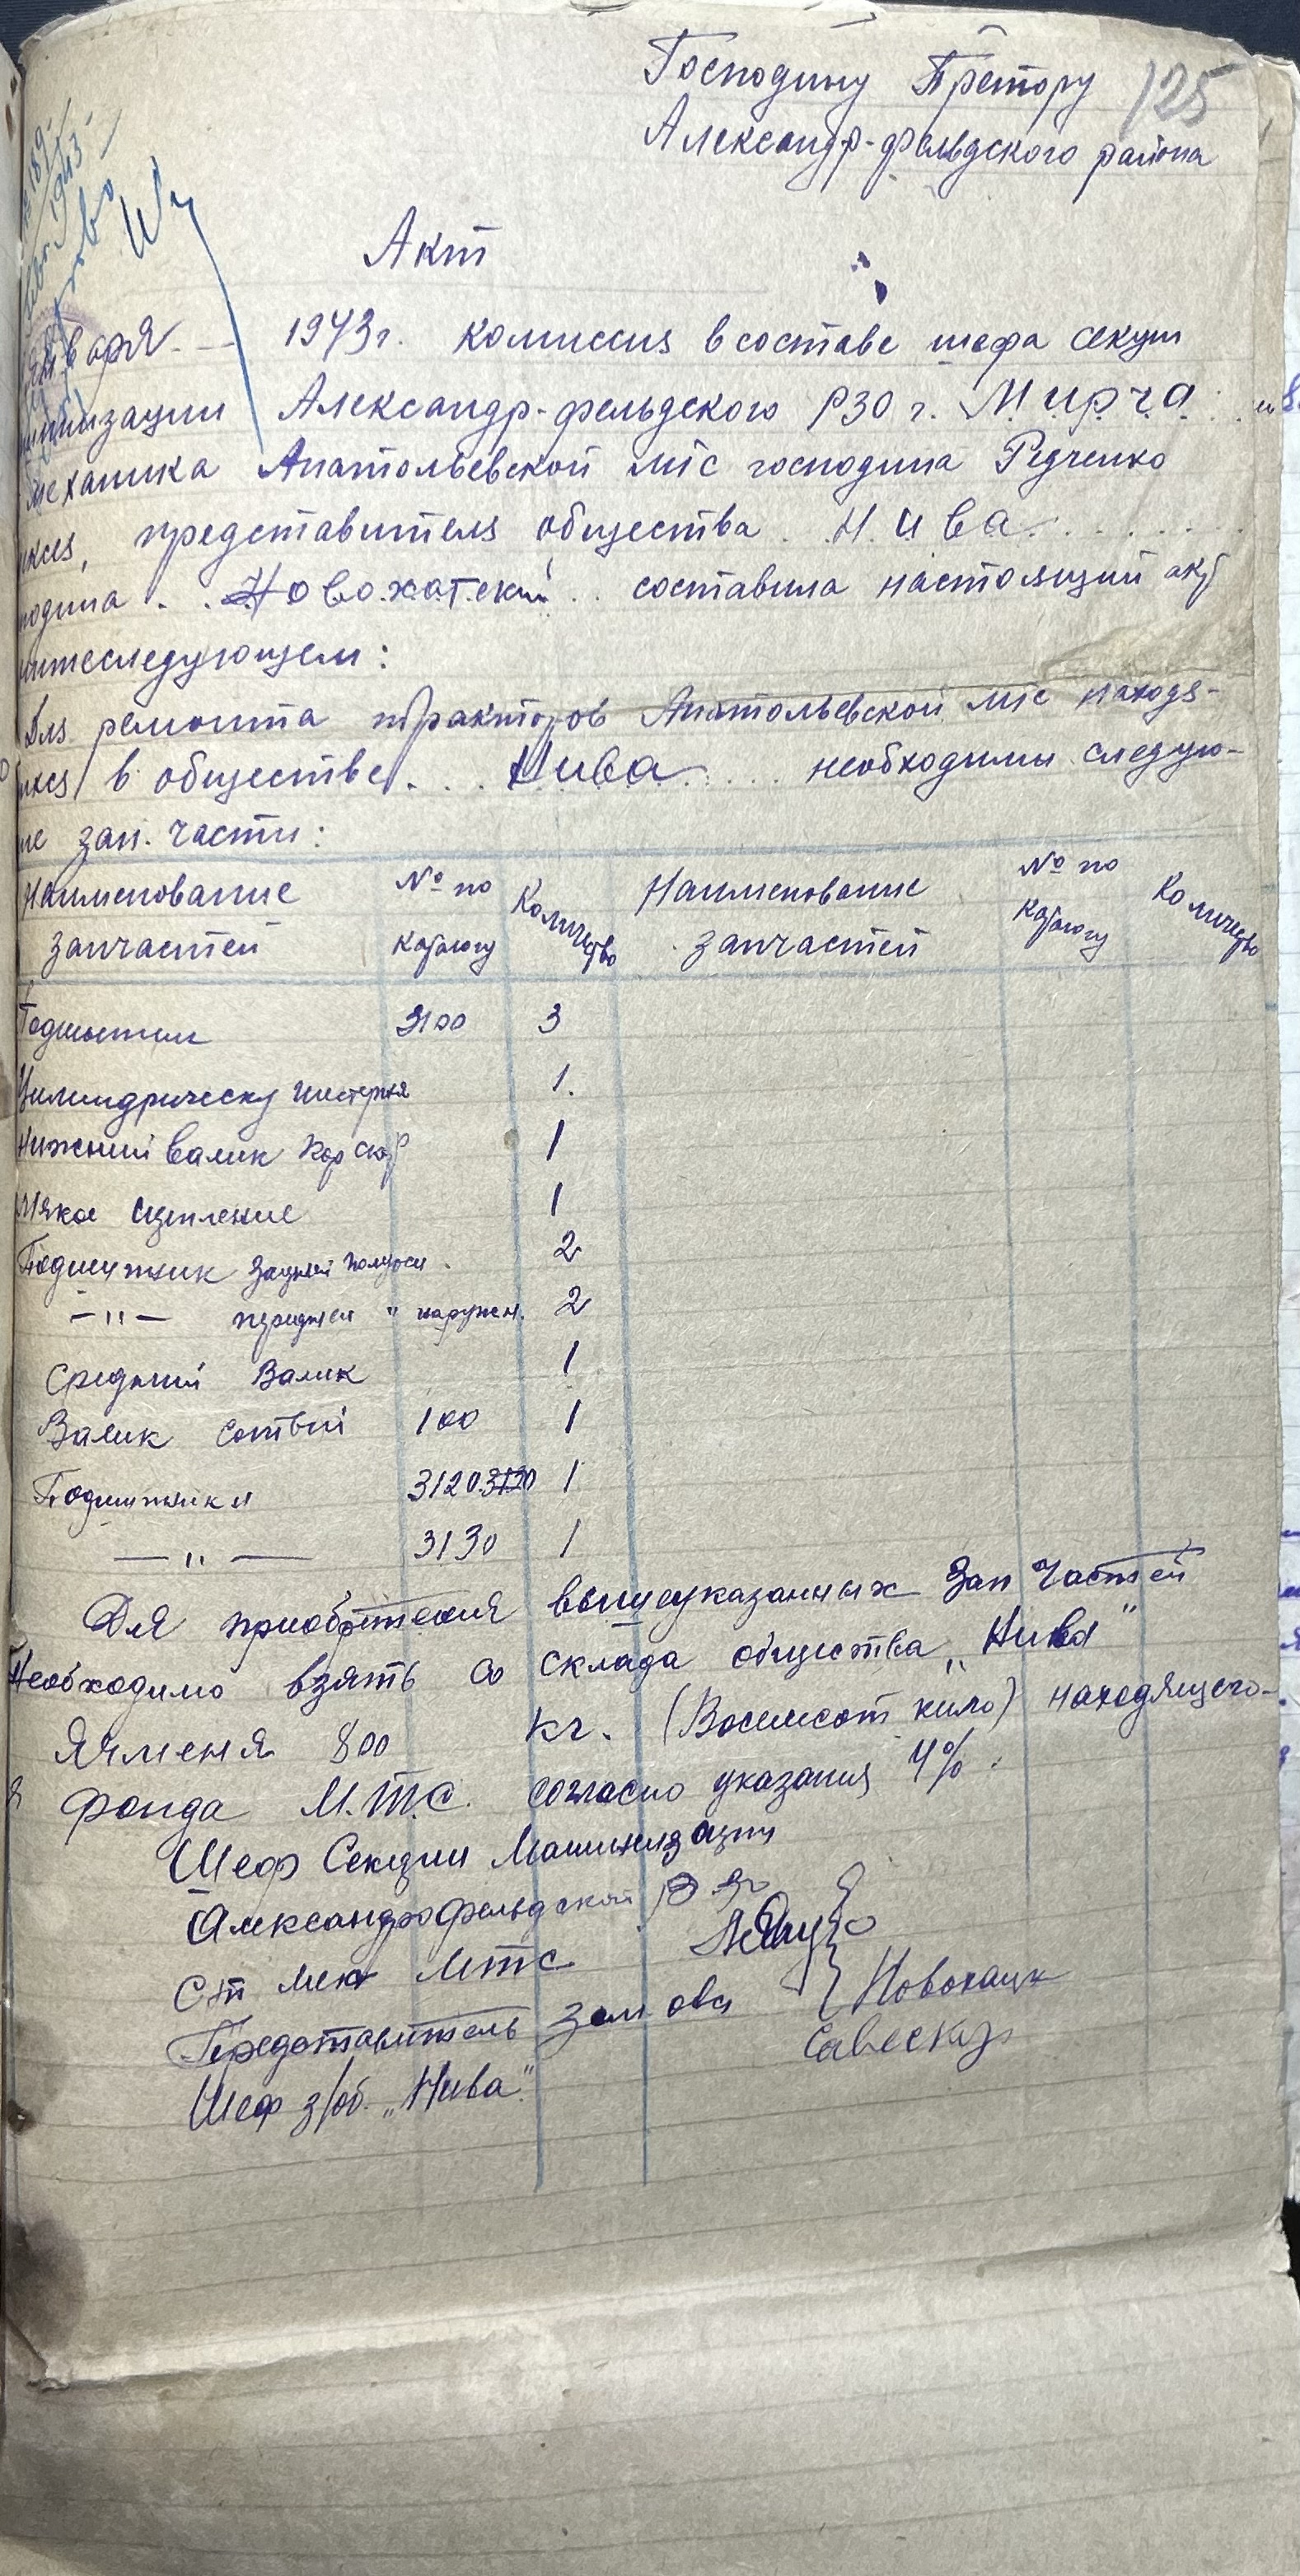 125
Господину Претору
Александр-фельдского района
Акт
января 1943 г. комиссия в составе шефа секции
машинизации Александр-фельдского РЗО г. Мирча и
механика Анатольевской мтс господина Редченко
представителя общества Нива
господина Новохатский составила настоящий акт
нижеследующем:
Для ремонта тракторов Анатольевской мтс находя-
щихся в обществе Нива необходимы следую-
щие зап. части:
Наименование запчастей № по каталогу Количество Наименование запчастей № по каталогу Количество
3100 3
Цилиндрическ шестерня 1.
Нижний валик кор скор 1
Мягкое сцепление 1
Подшипник задней полуоси 2
—"— передней " наружн. 2
Средний Валик 1
Валик 100 1
Подшипники 3120 3130 1
—"— 3130 1
Для приобретения вышеуказанных Зап Частей
Необходимо взять со склада общества „Нива"
Ячменя 800 кг. (Восемсот кило) находящего-
я фонда М.Т.С. согласно указания 4%
Шеф Секции Машинизации
Александрофельдской РЗО
Ст мех мтс
Представитель зем. ова Новохацк
Шеф з/об. „Нива"